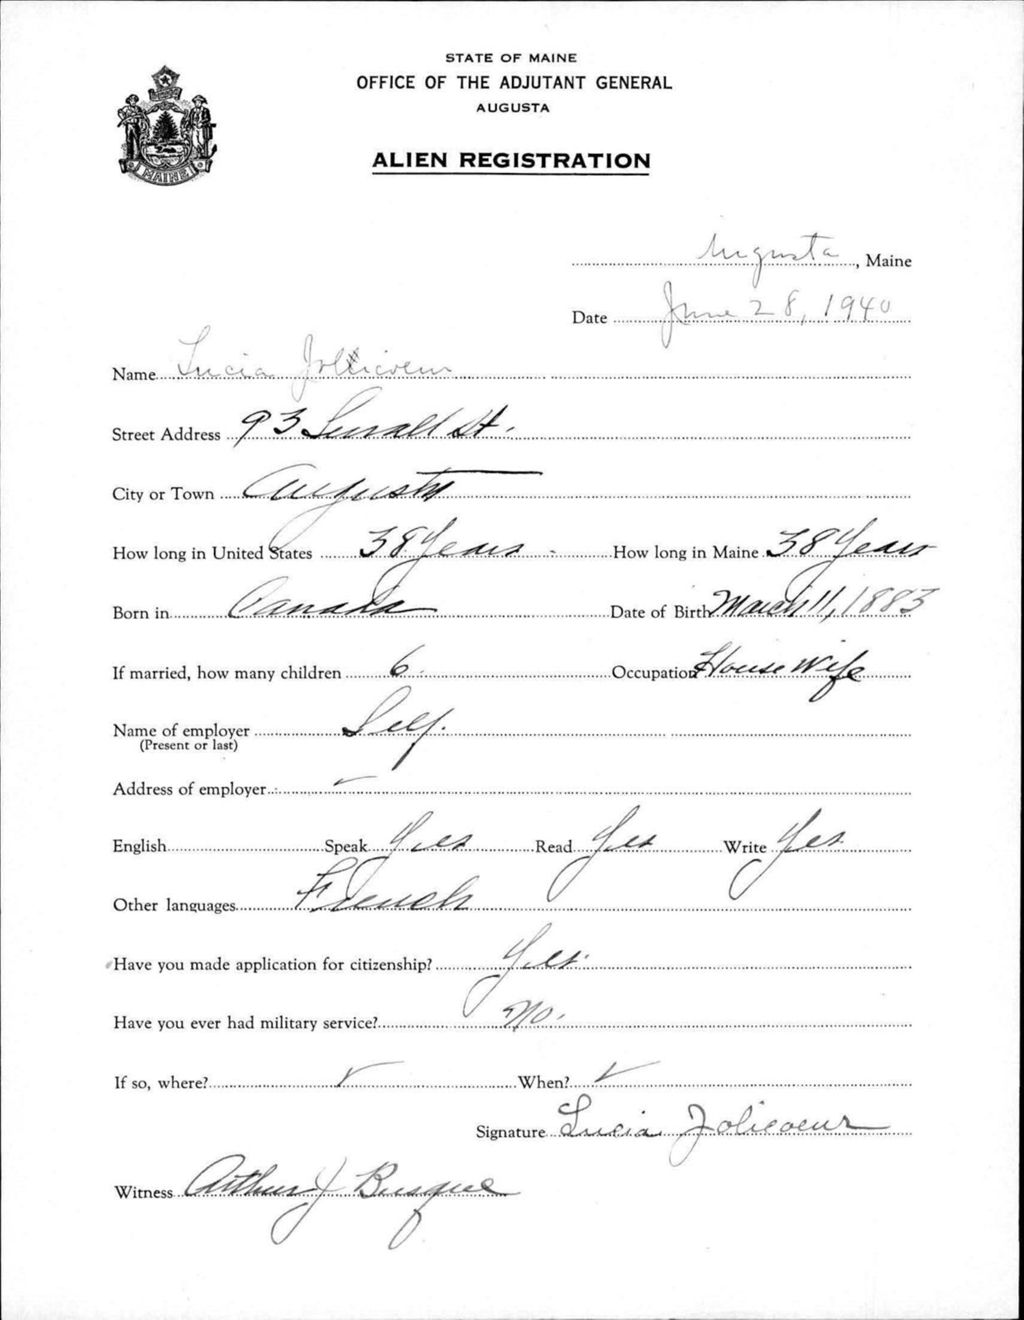 STATE OF MAINE
OFFICE OF THE ADJUTANT GENERAL
AUGUSTA
ALIEN REGISTRATION
MAINE
Augusta, Maine
Date June 28, 1940
Name Lucia Jollicoeur
Street Address 93 Sewall St.
City or Town Augusta
How long in United States 38 Years How long in Maine 38 Years
Born in Canada Date of Birth March 11, 1883
If married, how many children 6 Occupation House Wife
Name of employer Self.
(Present or last)
Address of employer
English Speak Yes Read Yes Write Yes
Other languages French
Have you made application for citizenship? Yes
Have you ever had military service? No.
If so, where? When?
Signature Lucia Jolicoeur
Witness Arthur J Busque